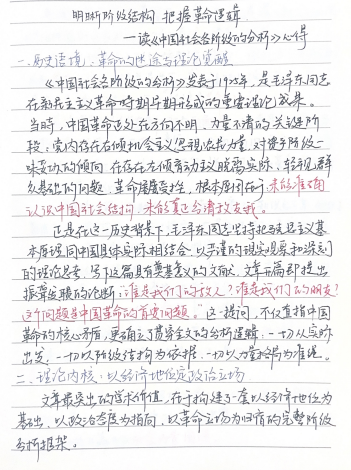 明晰阶级结构 把握革命逻辑
——读《中国社会各阶级的分析》心得
一、历史语境:革命的迷途与理论觉醒
《中国社会各阶级的分析》发表于1925年,是毛泽东同志
在新民主主义革命时期早期形成的重要理论成果。
当时,中国革命正处在方向不明、力量不清的关键阶
段:党内存在右倾机会主义忽视农民力量,对资产阶级一
味妥协的倾向 也存在左倾盲动主义脱离实际、轻视群
众基础的问题 革命屡遭受挫,根本原因在于未能准确
认识中国社会结构,未能真正分清敌友我。
正是在这一历史背景下,毛泽东同志坚持把马克思主义基
本原理同中国具体实际相结合,以严谨的现实观察和深刻
的理论思考,写下这篇具有奠基意义的文献。文章开篇即提出
振聋发聩的论断:“谁是我们的敌人?谁是我们的朋友?
这个问题是革命的首要问题。”这一提问,不仅直指中国
革命的核心矛盾,更确立了贯穿全文的分析逻辑:一切从实际
出发,一切以阶级结构为依据,一切以力量格局为准绳。
二、理论内核:以经济地位定政治立场
文章最突出的学术价值,在于构建了一套以经济地位为
基础,以政治态度为指向,以革命立场为归宿的完整阶级
分析框架。